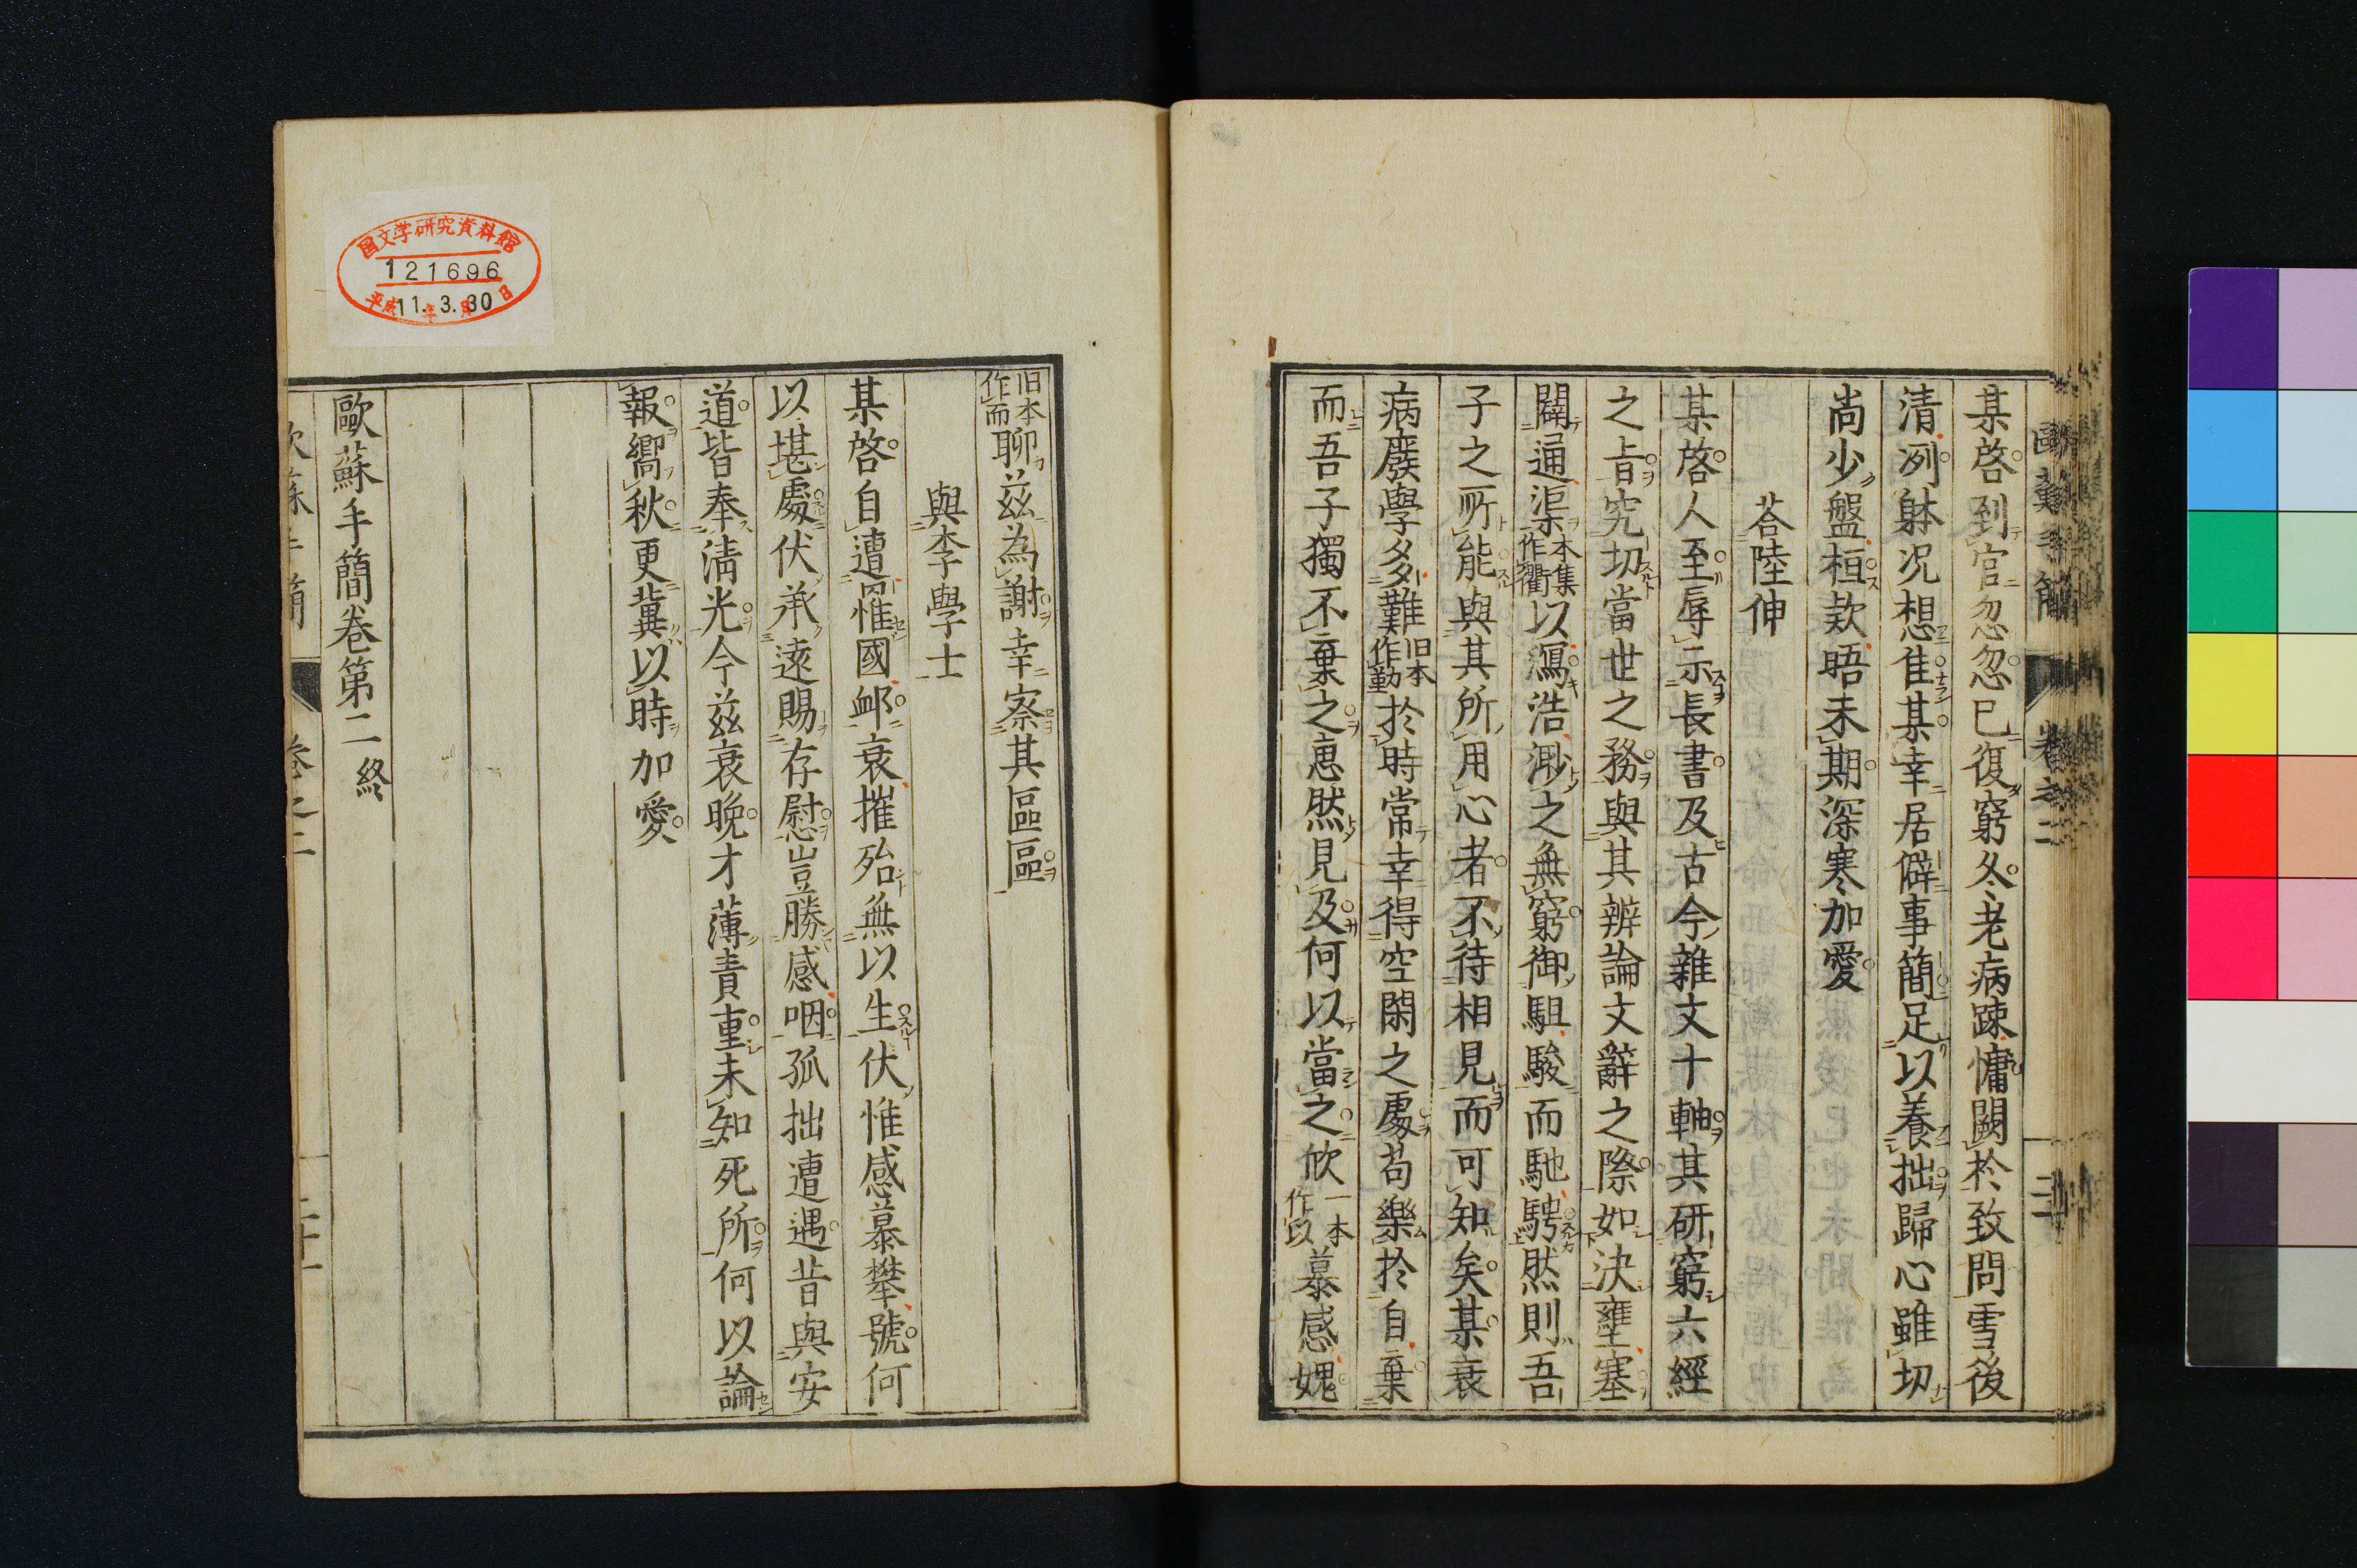 歐蘇手簡 卷之二
某啓到官忽忽已復窮冬老病踈慵闕於致問雪後
清冽躰况想佳某幸居僻事簡足以養拙歸心雖切
尚少盤桓欵晤未期深寒加愛
荅陸伸
某啓人至辱示長書及古今雜文十軸其研窮六經
之旨究切當世之務與其辨論文辭之際如決壅塞
闢通渠本集作衢以瀉浩渺之無窮御駔駿而馳騁然則吾
子之所能與其所用心者不待相見而可知矣某衰
病廢學多難旧本作勤於時常幸得空閑之處苟樂於自棄
而吾子獨不棄之惠然見及何以當之欣一本作以慕感媿
旧本作而聊兹為謝幸察其區區
與李學士
某啓自遭罔惟國䘏哀摧殆無以生伏惟感慕攀號何
以堪處伏承遠賜存慰豈勝感咽孤拙遭遇昔與安
道皆奉清光今兹衰晚才薄責重未知死所何以論
報嚮秋更冀以時加愛
歐蘇手簡卷第二終
歐蘇手簡 卷之二
国文学研究資料館
121696
平成11年3月30日